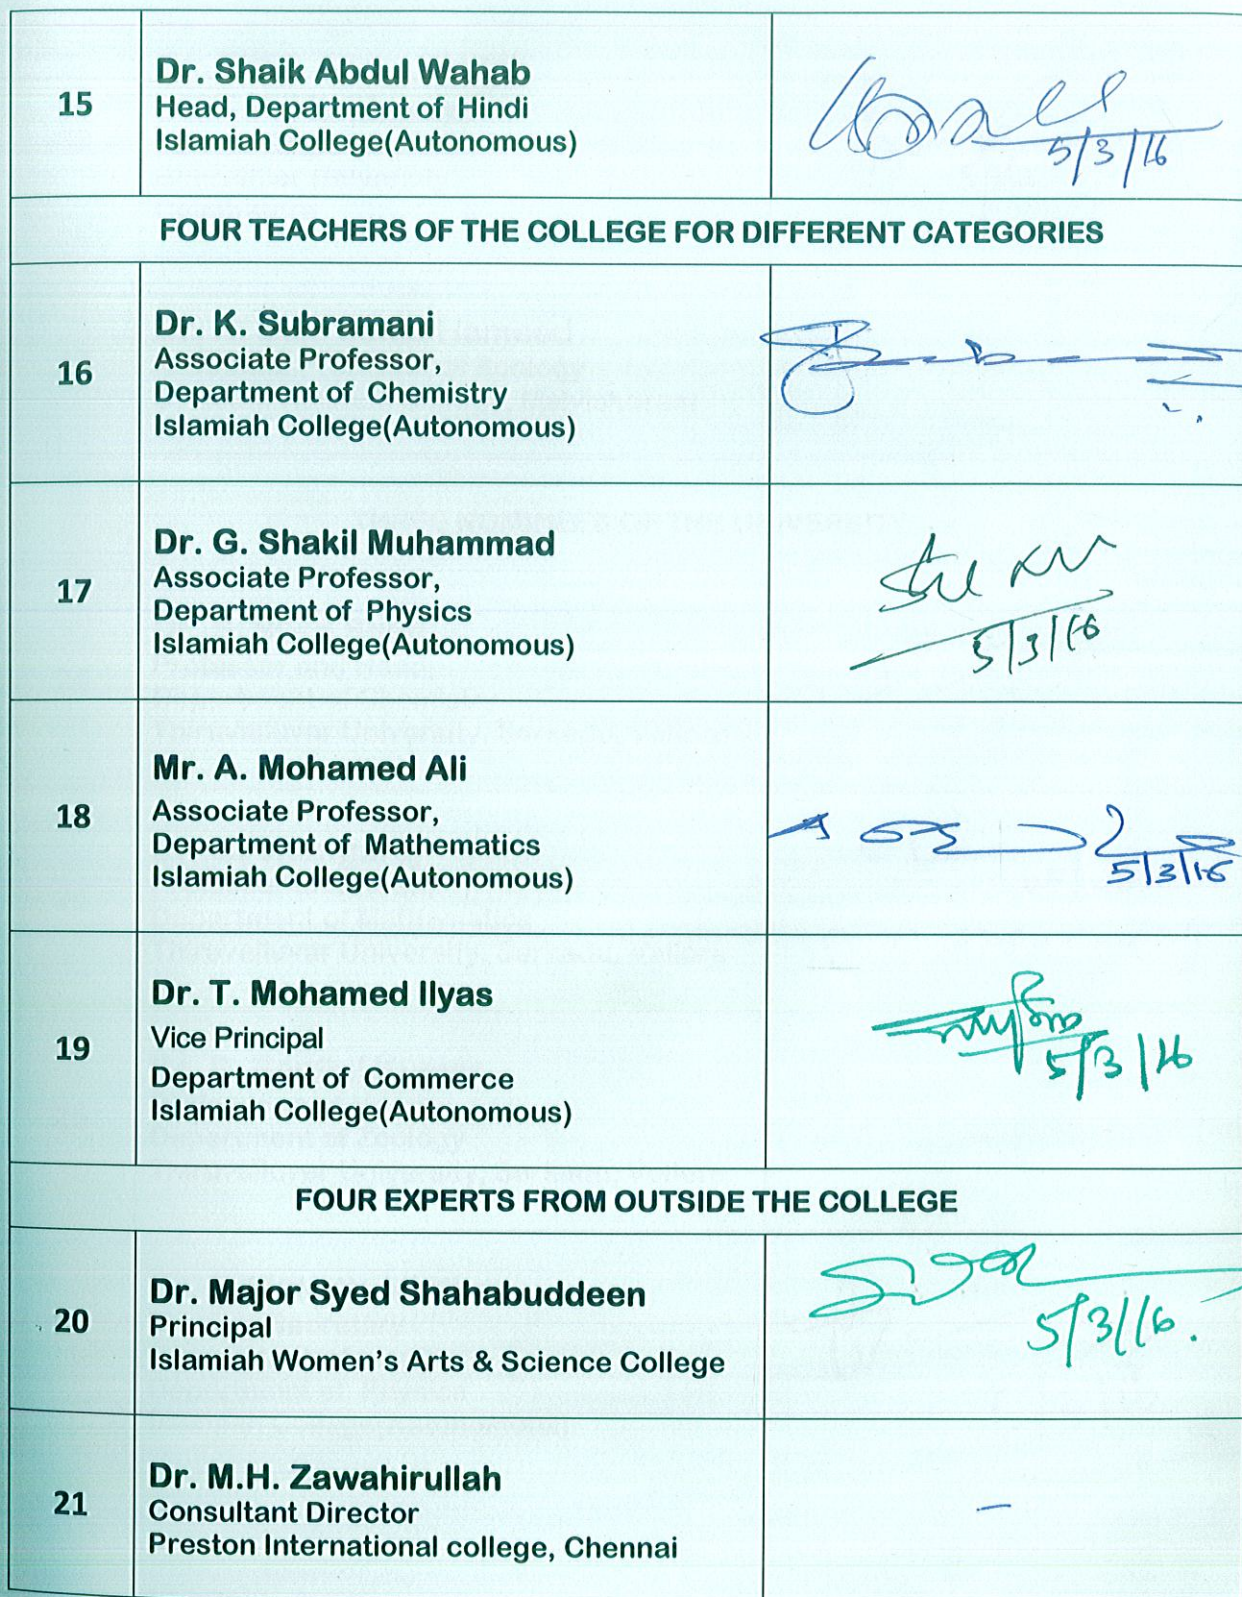 15
Dr. Shaik Abdul Wahab
Head, Department of Hindi
Islamiah College(Autonomous)
5/3/16
FOUR TEACHERS OF THE COLLEGE FOR DIFFERENT CATEGORIES
16
Dr. K. Subramani
Associate Professor,
Department of Chemistry
Islamiah College(Autonomous)
17
Dr. G. Shakil Muhammad
Associate Professor,
Department of Physics
Islamiah College(Autonomous)
5/3/16
18
Mr. A. Mohamed Ali
Associate Professor,
Department of Mathematics
Islamiah College(Autonomous)
5/3/16
19
Dr. T. Mohamed Ilyas
Vice Principal
Department of Commerce
Islamiah College(Autonomous)
5/3/16
FOUR EXPERTS FROM OUTSIDE THE COLLEGE
20
Dr. Major Syed Shahabuddeen
Principal
Islamiah Women's Arts & Science College
5/3/16.
21
Dr. M.H. Zawahirullah
Consultant Director
Preston International college, Chennai
–